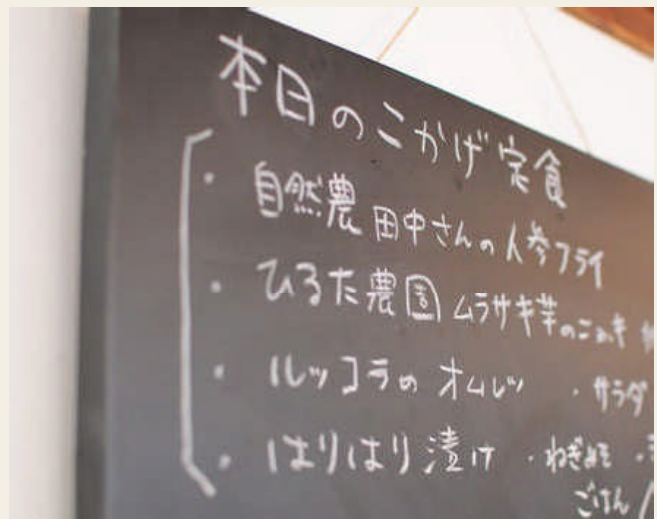 本日のこかげ定食
・自然農 田中さんの人参フライ
・ひるた農園 ムラサキ芋の
・ルッコラの オムレツ ・サラダ
・はりはり漬け ・ねぎみそ ・
ごはん